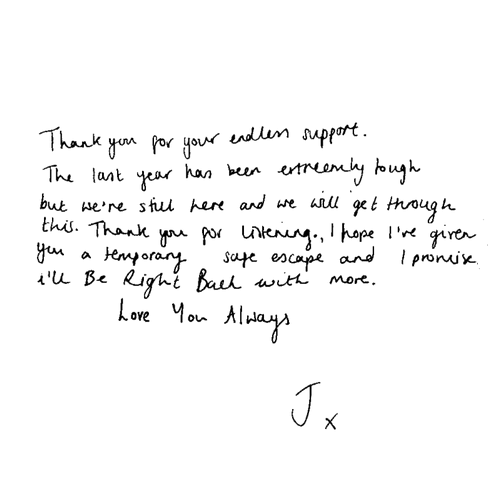 Thank you for your endless support.
The last year has been extreemly tough
but we're still here and we will get through
this. Thank you for listening., I hope I've given
you a temporary safe escape and I promise
i'll Be Right Back with more.
Love You Always
J x